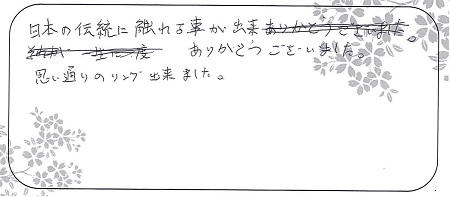 日本の伝統に触れる事が出来ありがとうございました。
一生に一度 ありがとうございました。
思い通りのリング出来ました。